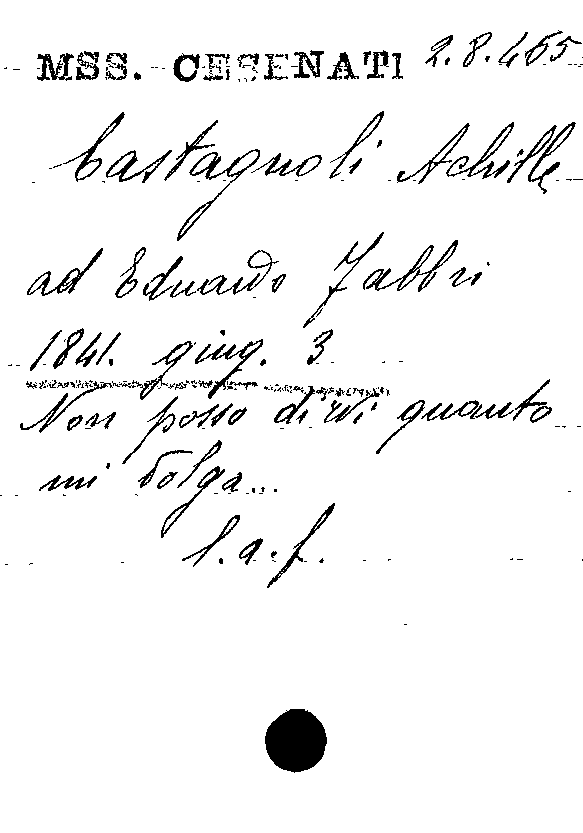 MSS. CESENATI 2.8.465
Castagnoli Achille
ad Eduardo Fabbri
1841. giug. 3
Non posso dirvi quanto
mi dolga...
l.a.f.